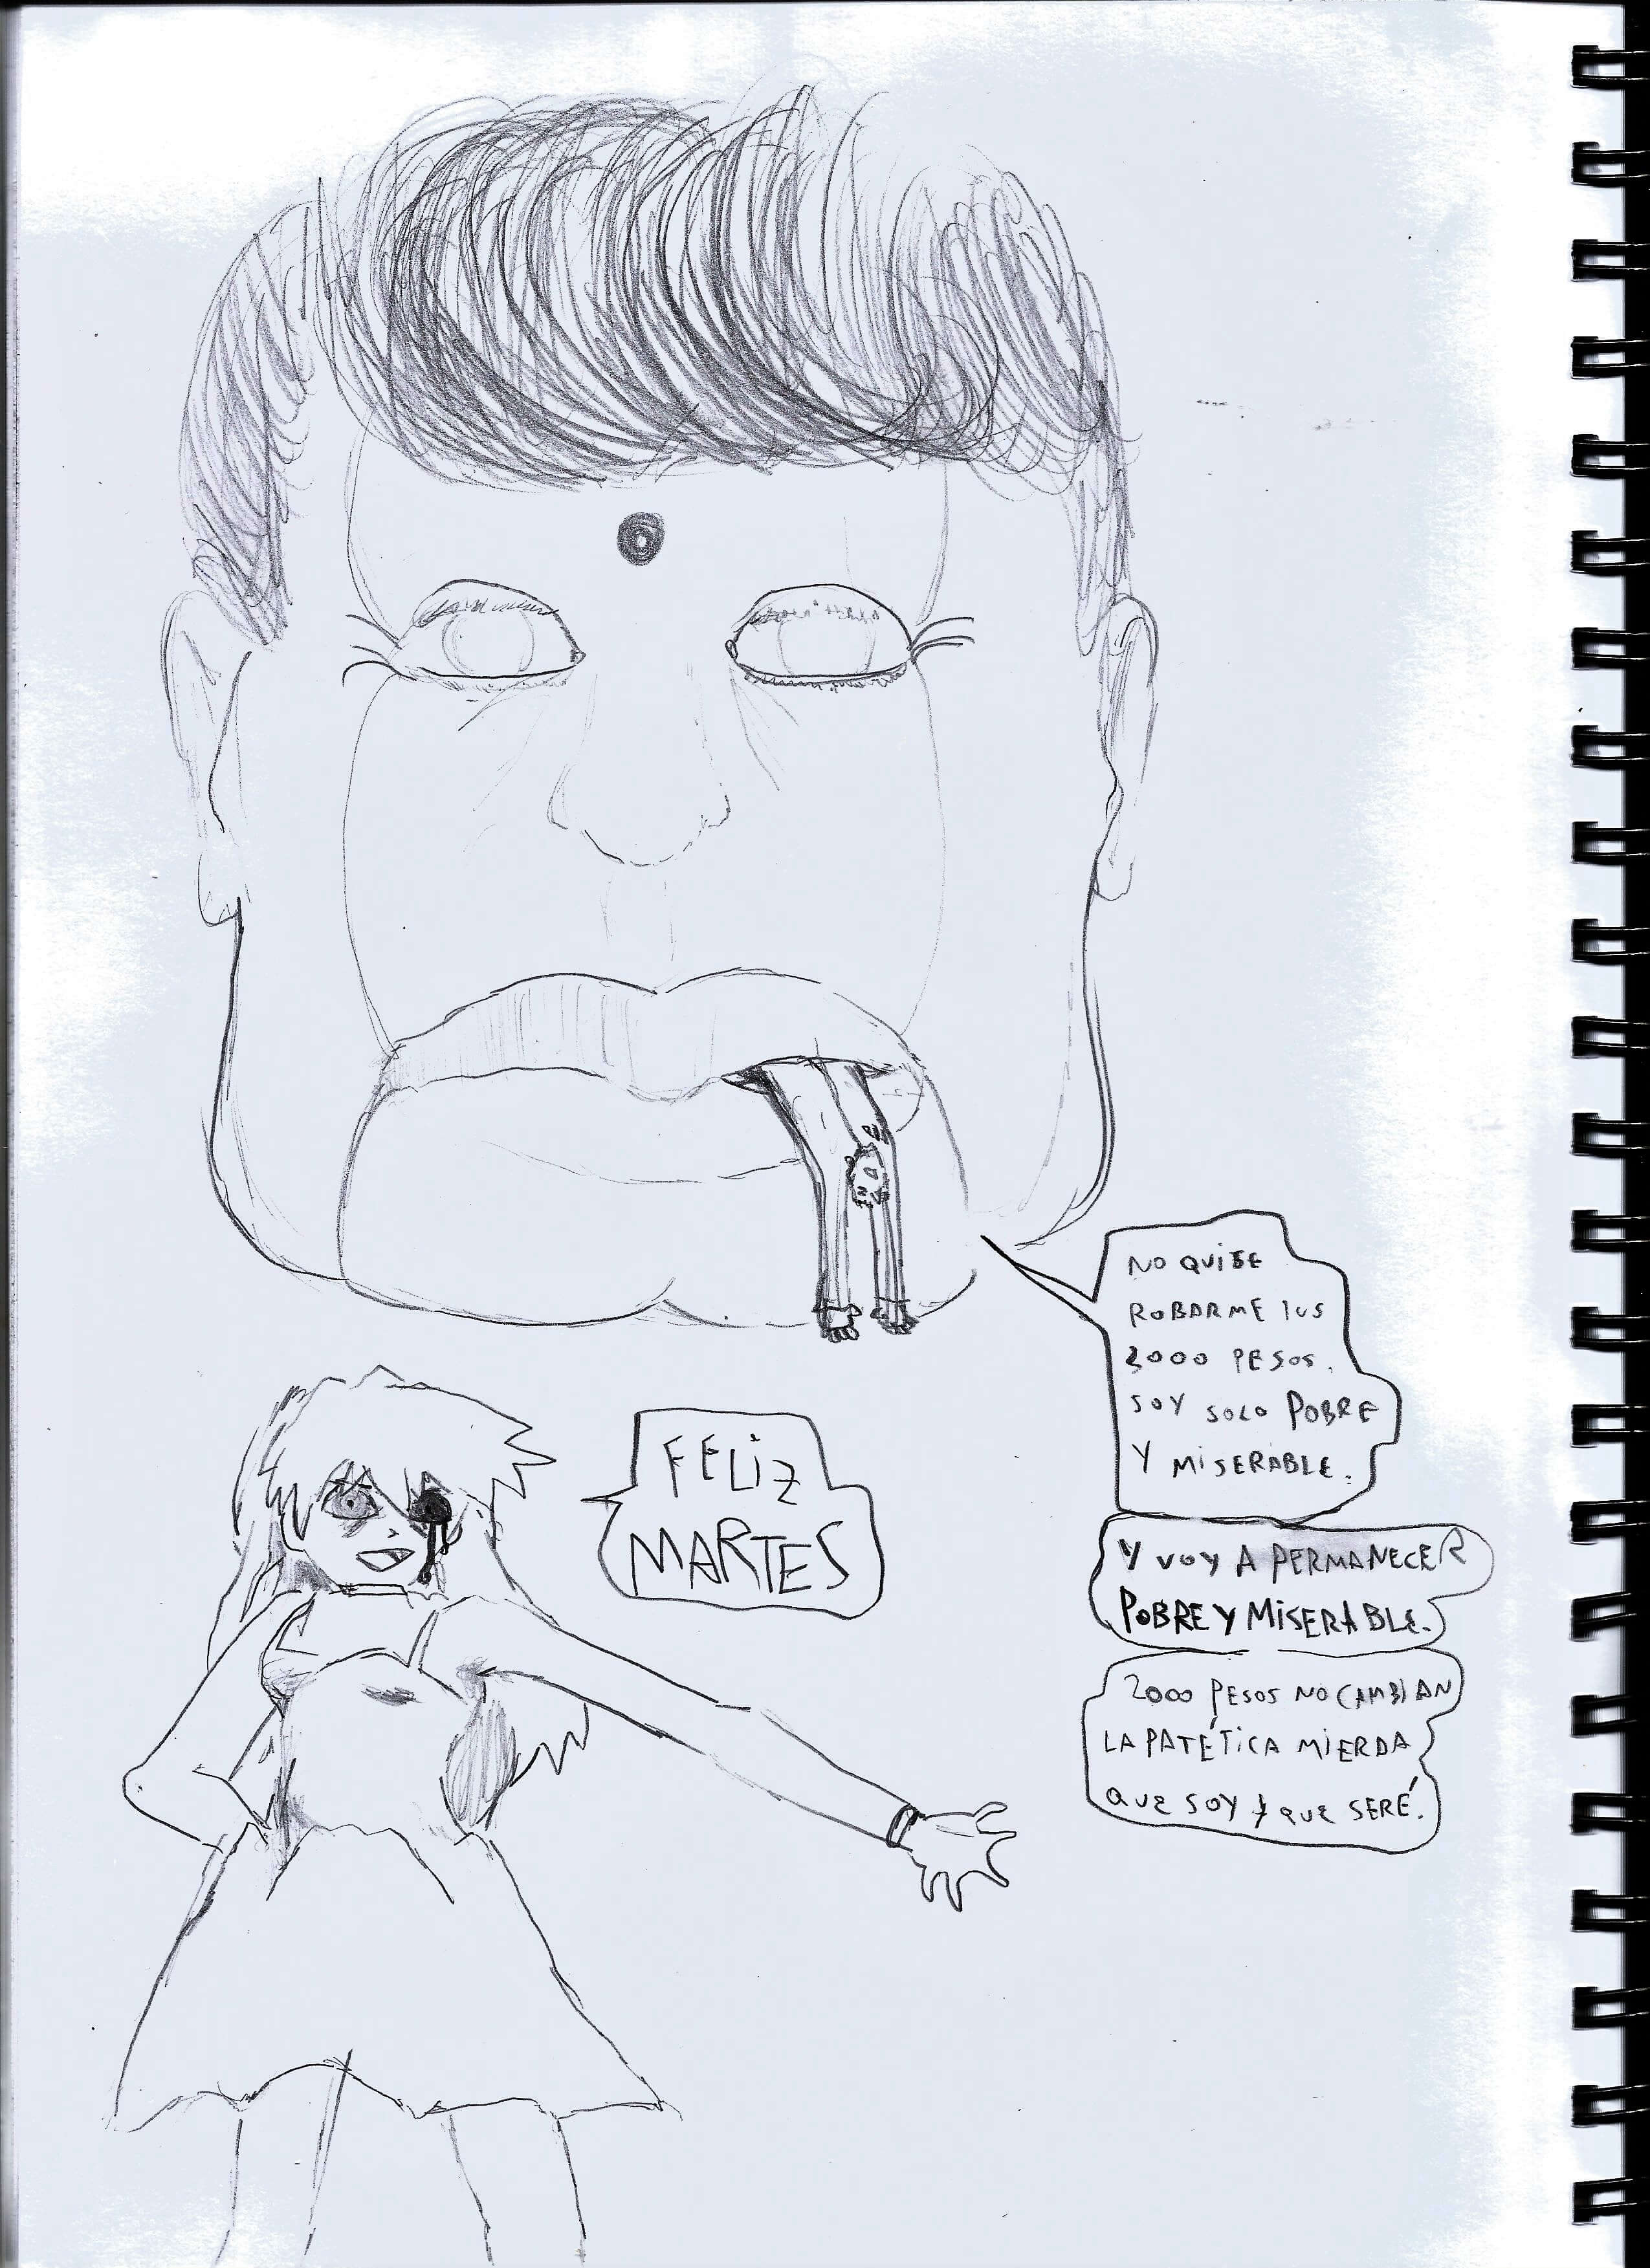 FELIZ
MARTES
NO QUISE
ROBARME LOS
2000 PESOS.
SOY SOLO POBRE
Y MISERABLE.
Y VOY A PERMANECER
POBRE Y MISERABLE.
2000 PESOS NO CAMBIAN
LA PATÉTICA MIERDA
QUE SOY Y QUE SERÉ.